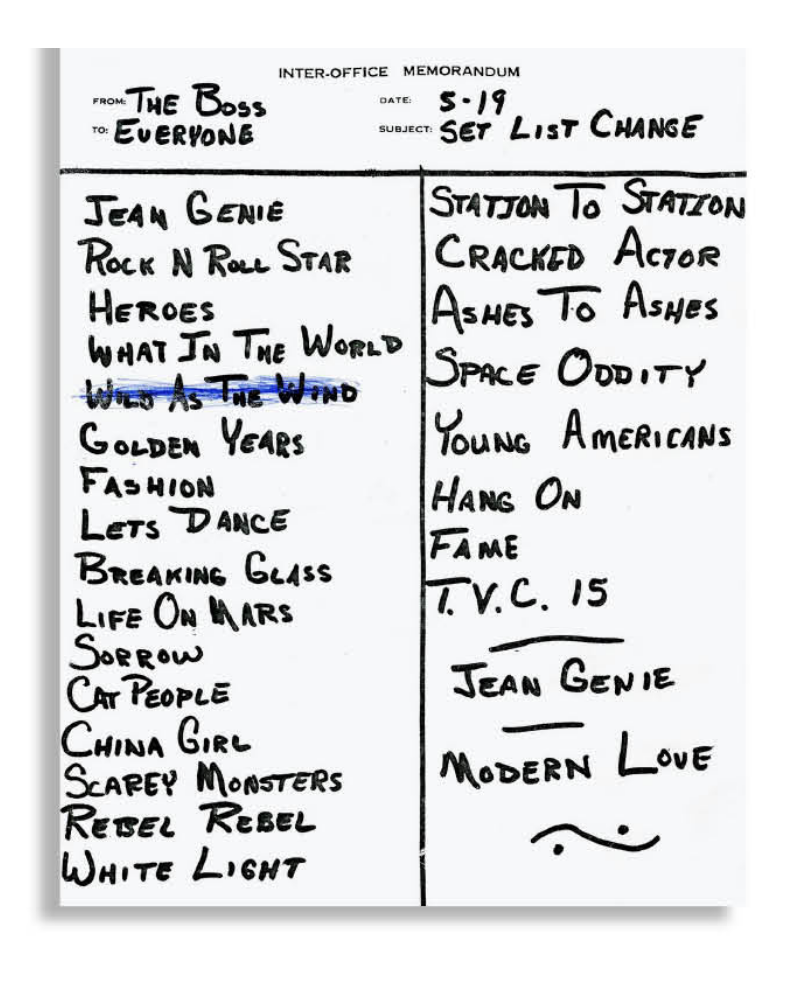 INTER-OFFICE MEMORANDUM
FROM: THE BOSS
DATE: 5-19
TO: EVERYONE
SUBJECT: SET LIST CHANGE
JEAN GENIE
ROCK N ROLL STAR
HEROES
WHAT IN THE WORLD
WILD AS THE WIND
GOLDEN YEARS
FASHION
LETS DANCE
BREAKING GLASS
LIFE ON MARS
SORROW
CAT PEOPLE
CHINA GIRL
SCAREY MONSTERS
REBEL REBEL
WHITE LIGHT
STATION TO STATION
CRACKED ACTOR
ASHES TO ASHES
SPACE ODDITY
YOUNG AMERICANS
HANG ON
FAME
T.V.C. 15
JEAN GENIE
MODERN LOVE